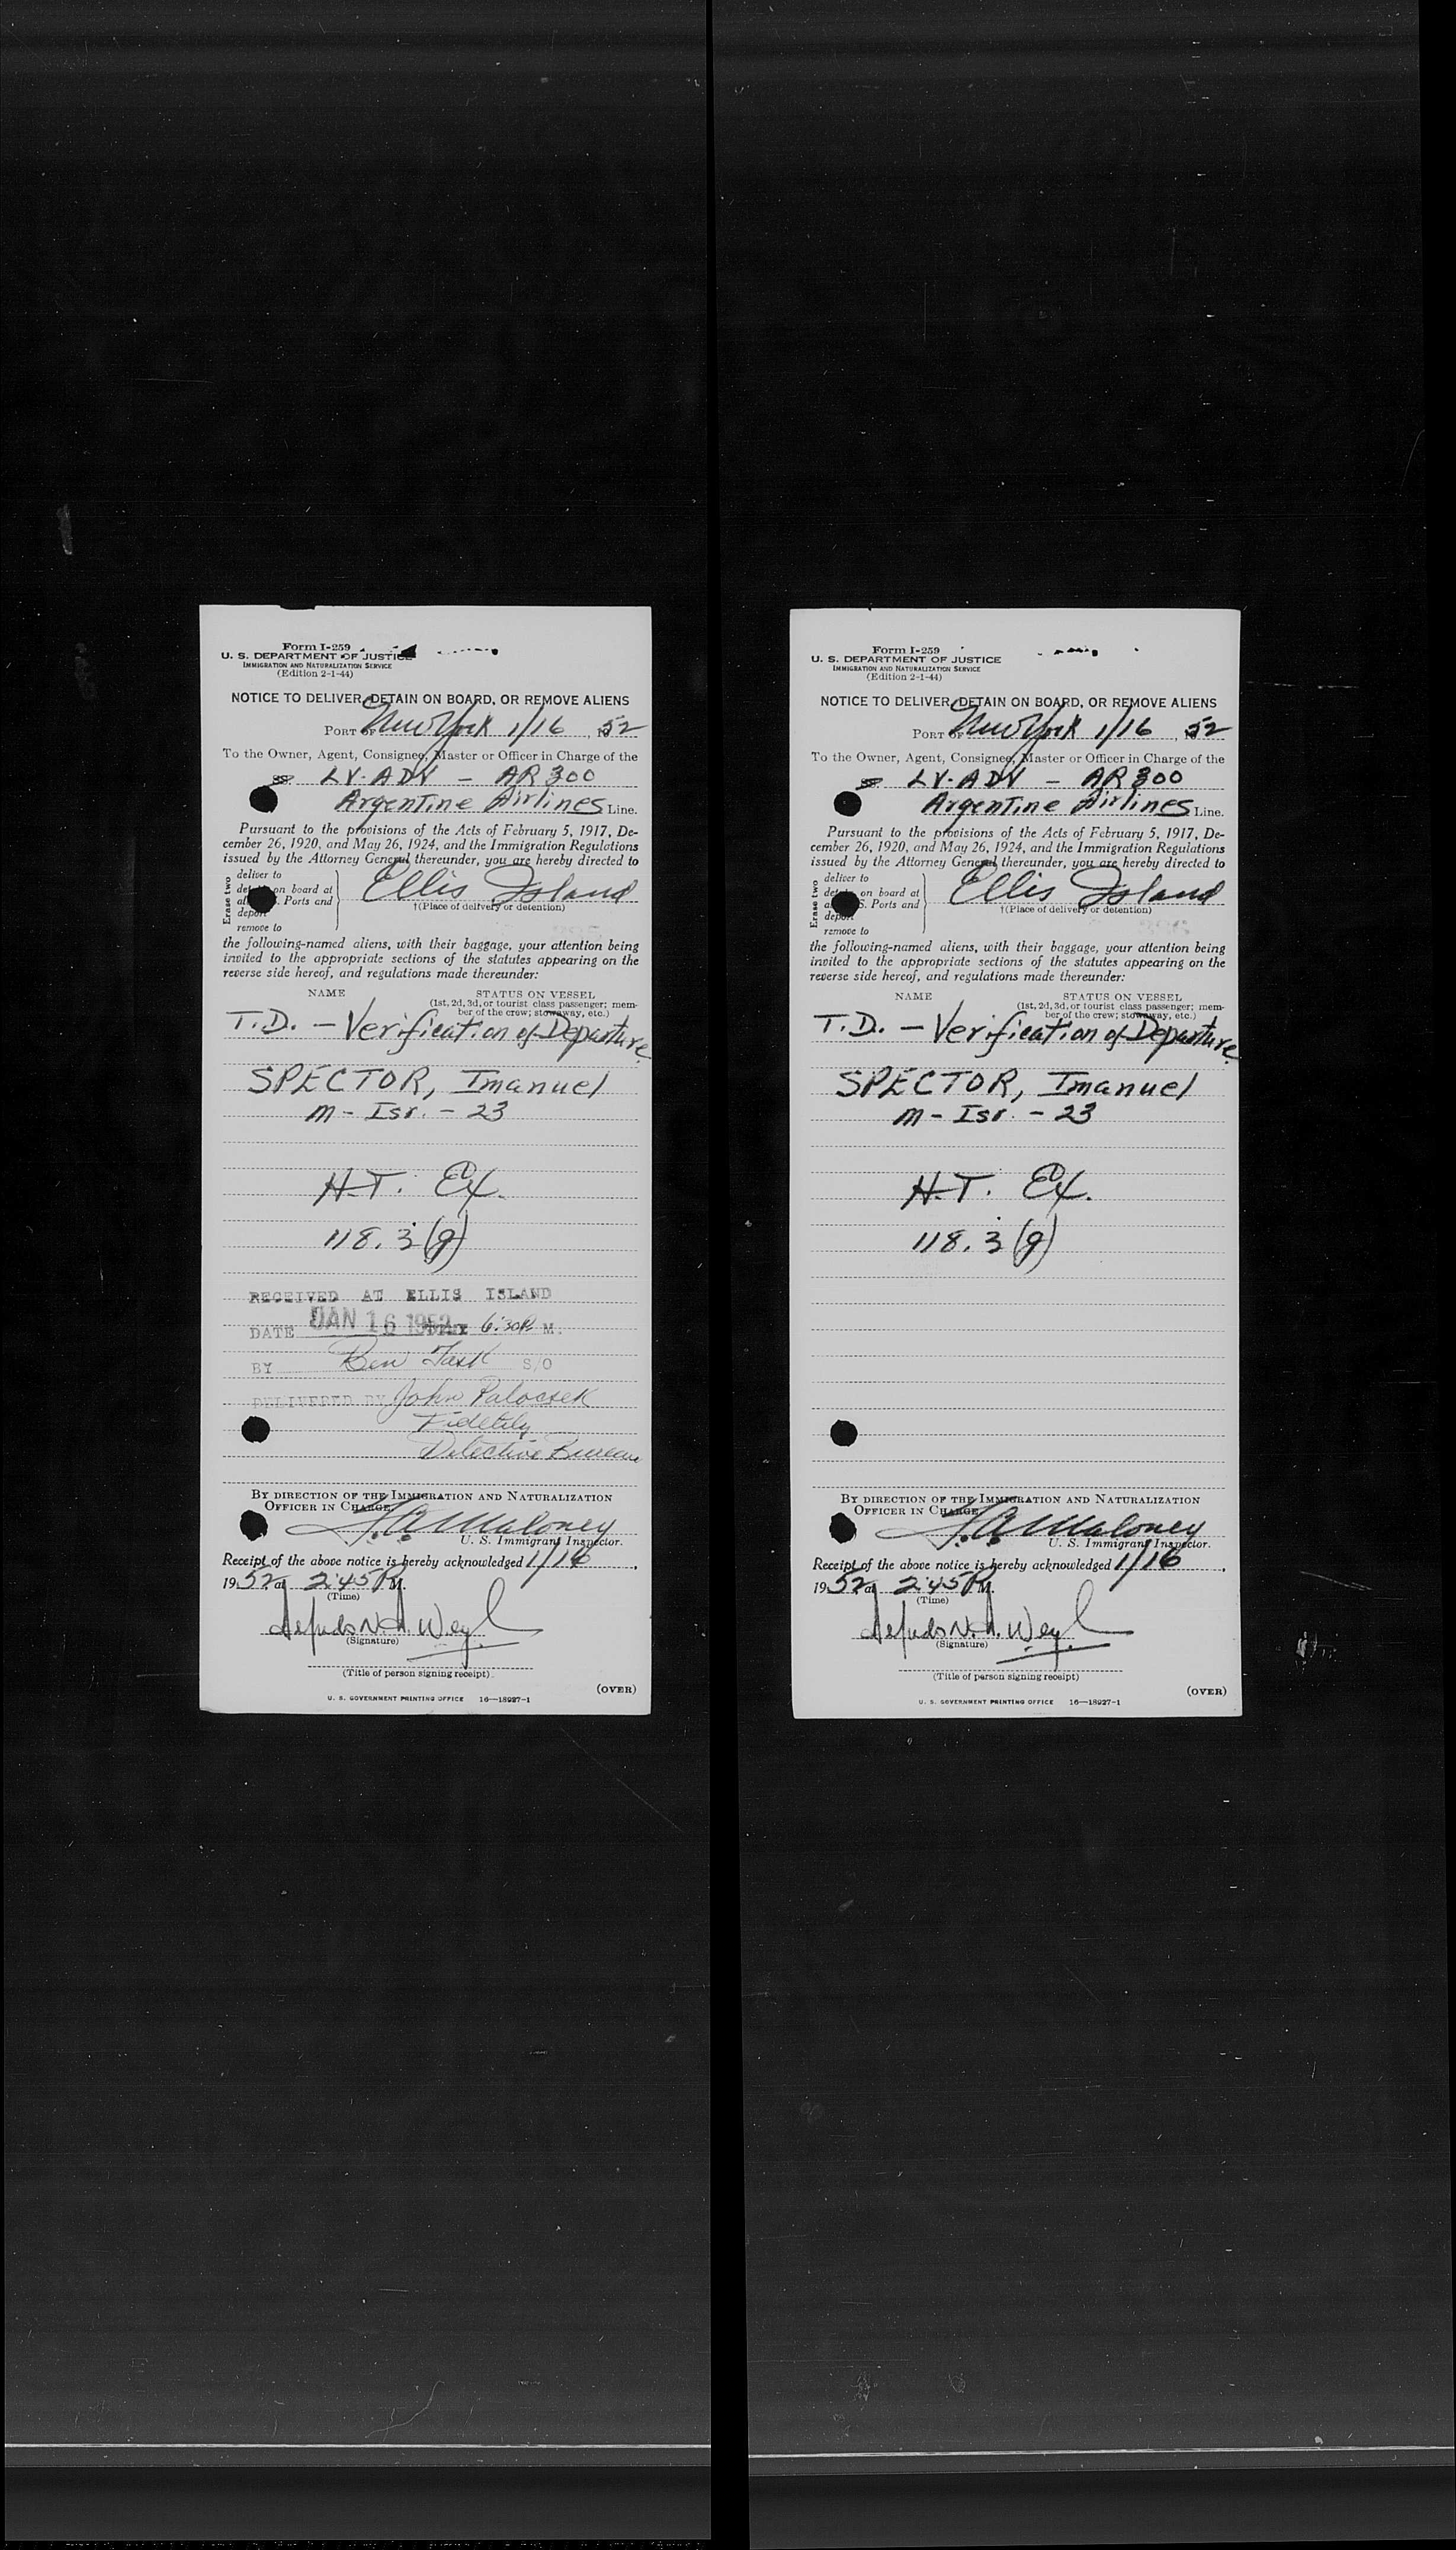 Form I-259
U. S. DEPARTMENT OF JUSTICE
IMMIGRATION AND NATURALIZATION SERVICE
(Edition 2-1-44)
NOTICE TO DELIVER, DETAIN ON BOARD, OR REMOVE ALIENS
PORT OF New York 1/16, 1952
To the Owner, Agent, Consignee, Master or Officer in Charge of the
SS LV-ADV - AR 300
Argentine Airlines Line.
Pursuant to the provisions of the Acts of February 5, 1917, De-
cember 26, 1920, and May 26, 1924, and the Immigration Regulations
issued by the Attorney General thereunder, you are hereby directed to
Erase two
deliver to
on board at
Ports and
depor
remove to
Ellis Island
†(Place of delivery or detention)
the following-named aliens, with their baggage, your attention being
invited to the appropriate sections of the statutes appearing on the
reverse side hereof, and regulations made thereunder:
NAME STATUS ON VESSEL
(1st, 2d, 3d, or tourist class passenger; mem-
ber of the crew; stowaway, etc.)
T.D. - Verification of Departure.
SPECTOR, Imanuel
m - Isr. - 23
H.T. Ex.
118.3(g)
RECEIVED AT ELLIS ISLAND
DATE JAN 16 1952 6:30P M.
BY Ben Task S/O
DELIVERED BY John Palocsek
Fidelity
Detective Bureau
BY DIRECTION OF THE IMMIGRATION AND NATURALIZATION
OFFICER IN CHARGE
Maloney
U. S. Immigrant Inspector.
Receipt of the above notice is hereby acknowledged 1/16,
1952 at 2:45 P M.
(Time)
Weyl
(Signature)
(Title of person signing receipt)
(OVER)
U. S. GOVERNMENT PRINTING OFFICE 16—18927-1
Form I-259
U. S. DEPARTMENT OF JUSTICE
IMMIGRATION AND NATURALIZATION SERVICE
(Edition 2-1-44)
NOTICE TO DELIVER, DETAIN ON BOARD, OR REMOVE ALIENS
PORT OF New York 1/16, 1952
To the Owner, Agent, Consignee, Master or Officer in Charge of the
SS LV-ADV - AR 300
Argentine Airlines Line.
Pursuant to the provisions of the Acts of February 5, 1917, De-
cember 26, 1920, and May 26, 1924, and the Immigration Regulations
issued by the Attorney General thereunder, you are hereby directed to
Erase two
deliver to
on board at
S. Ports and
depor
remove to
Ellis Island
†(Place of delivery or detention)
the following-named aliens, with their baggage, your attention being
invited to the appropriate sections of the statutes appearing on the
reverse side hereof, and regulations made thereunder:
NAME STATUS ON VESSEL
(1st, 2d, 3d, or tourist class passenger; mem-
ber of the crew; stowaway, etc.)
T.D. - Verification of Departure.
SPECTOR, Imanuel
m - Isr. - 23
H.T. Ex.
118.3(g)
BY DIRECTION OF THE IMMIGRATION AND NATURALIZATION
OFFICER IN CHARGE
Maloney
U. S. Immigrant Inspector.
Receipt of the above notice is hereby acknowledged 1/16,
1952 at 2:45 P M.
(Time)
Weyl
(Signature)
(Title of person signing receipt)
(OVER)
U. S. GOVERNMENT PRINTING OFFICE 16—18927-1